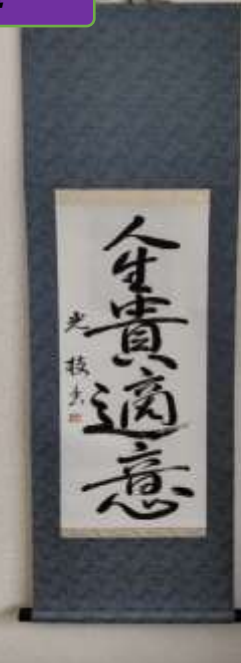 人生貴適意
光枝书